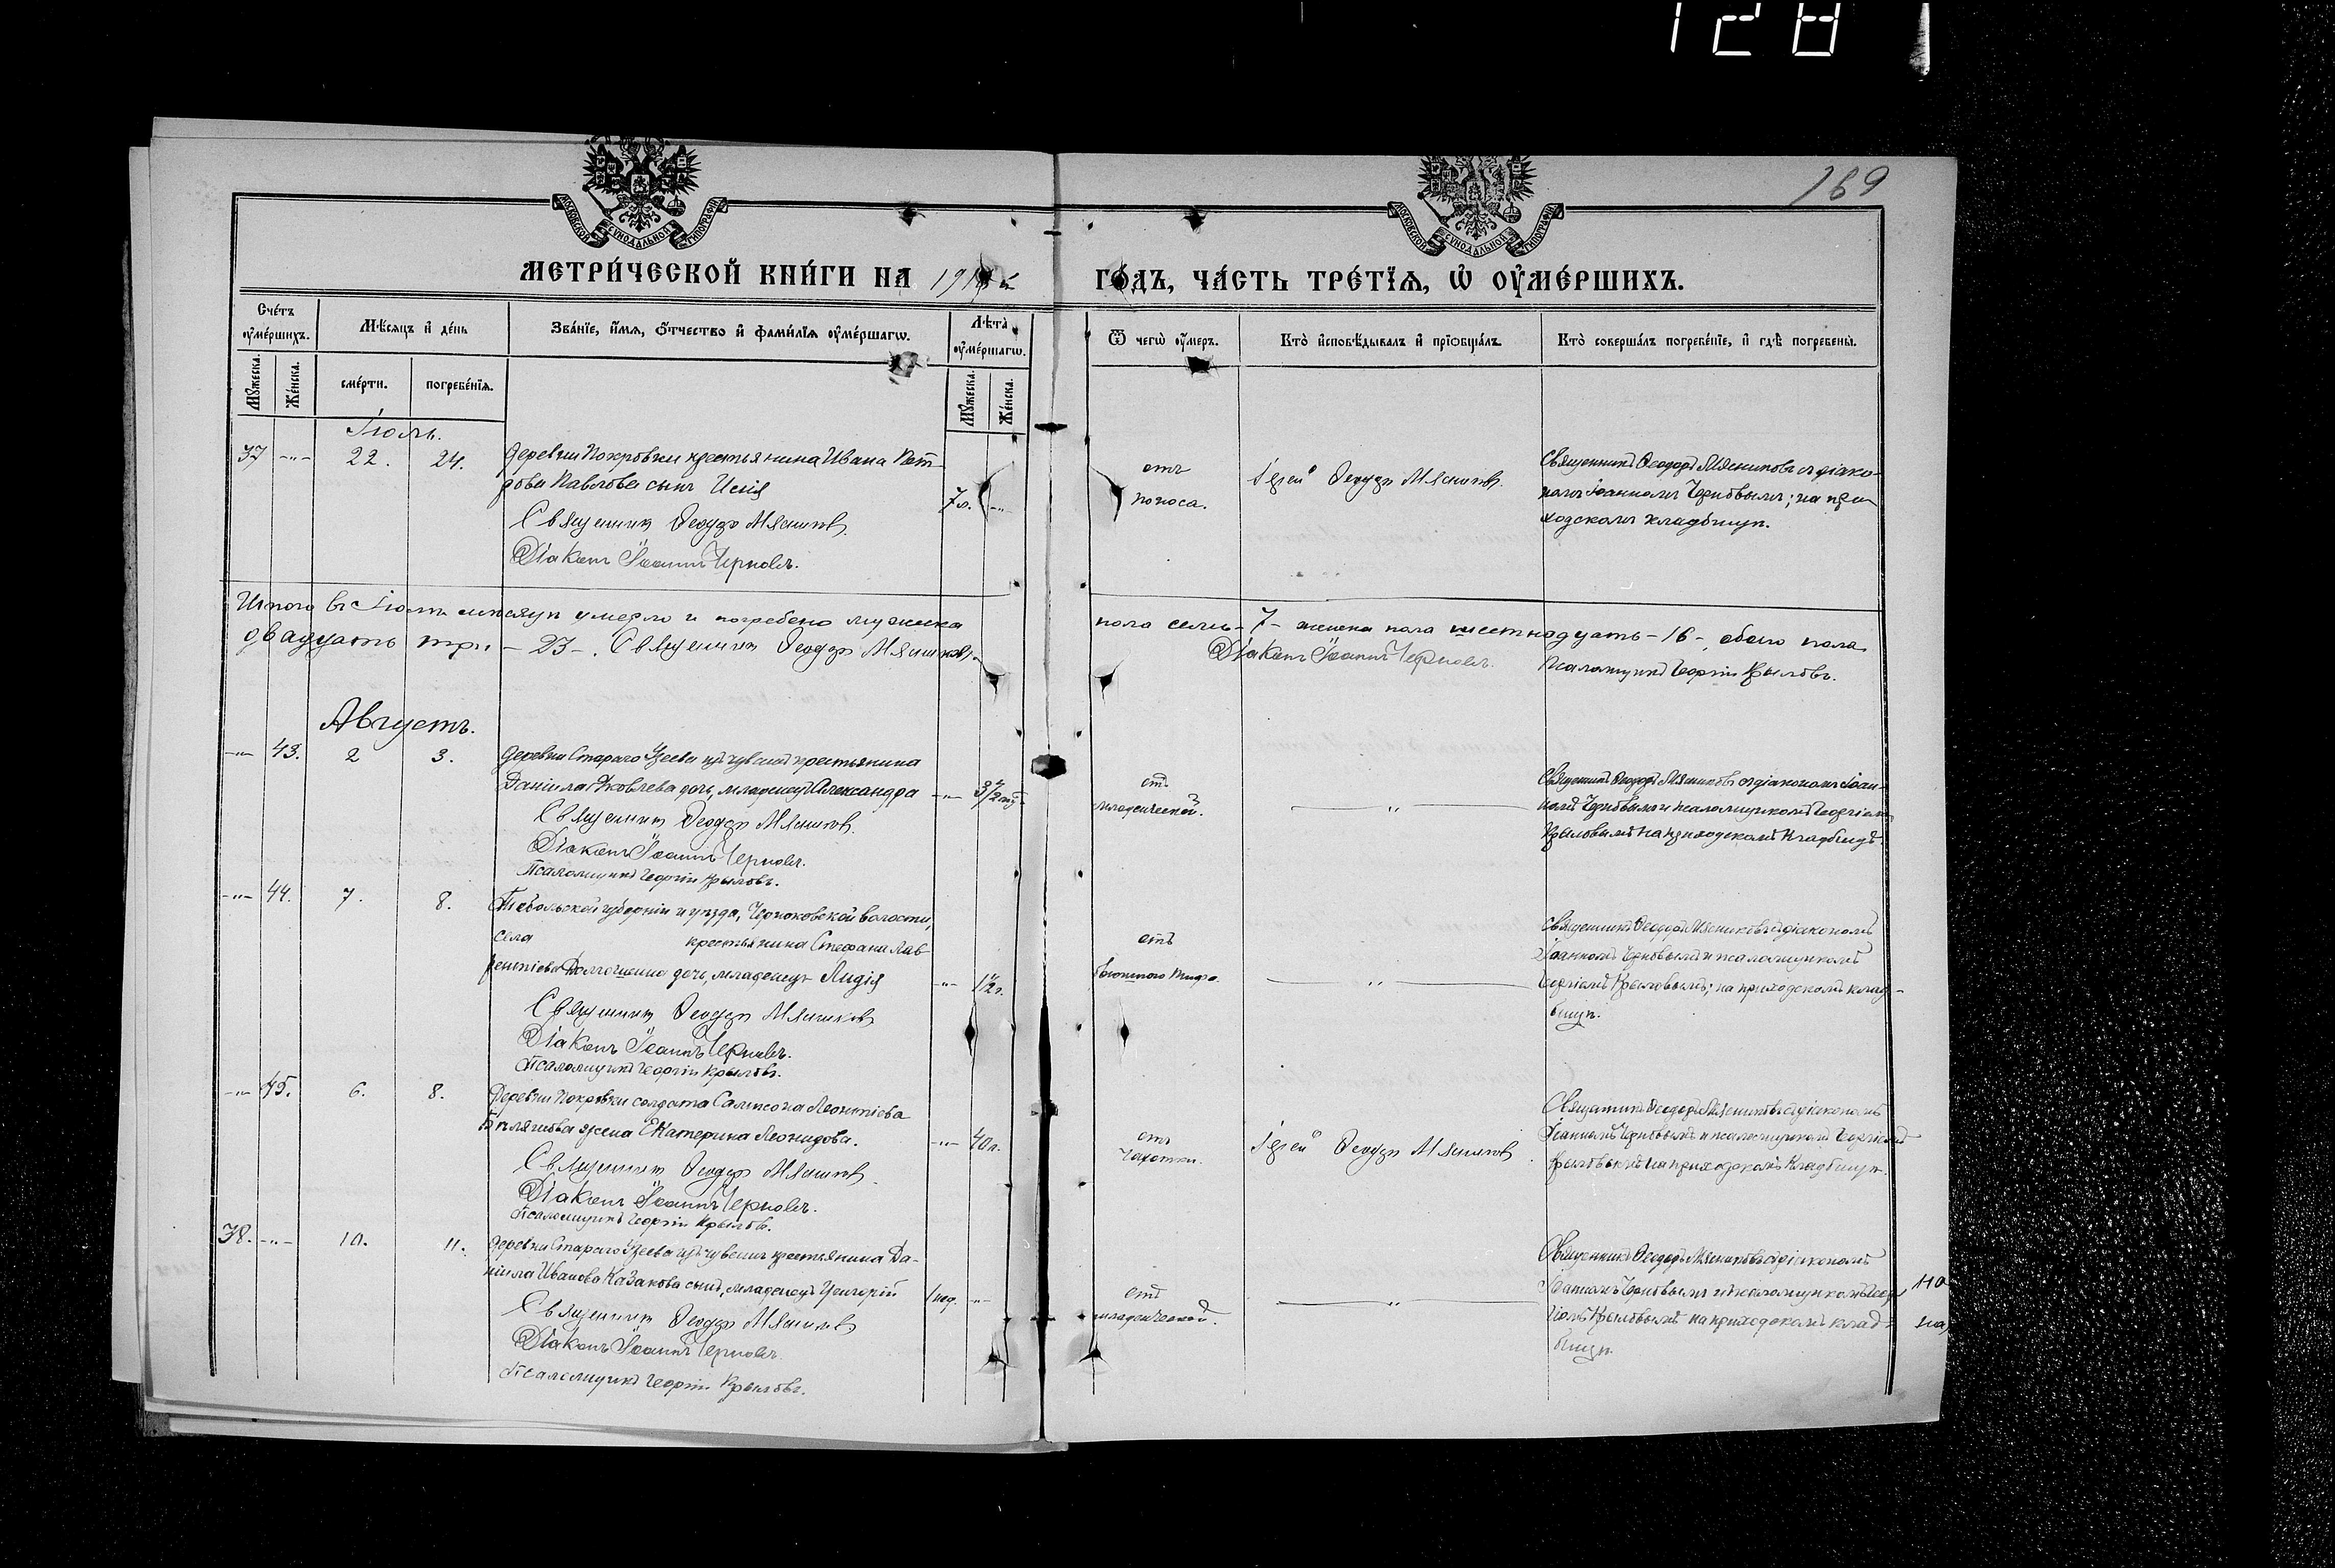 1281
169
МОСКОВСКОЙ СУНОДАЛЬНОЙ ТИПОГРАФІИ
МОСКОВСКОЙ СУНОДАЛЬНОЙ ТИПОГРАФІИ
МЕТРИ́ЧЕСКОЙ КНИ́ГИ НА 191 й ГО́ДЪ, ЧА́СТЬ ТРЕ́ТІѦ, Ѡ҆ ОУ҆МЕ́РШИХЪ.
Сче́тъ оу҆ме́ршихъ.
Мѣ́сяцъ и҆ де́нь
Зва́нїе, и҆́мѧ, ѻ҆́тчество и҆ фами́лїѧ оу҆ме́ршагѡ.
Лѣ́та оу҆ме́ршагѡ.
Ѿ чегѡ̀ оу҆́меръ.
Кто̀ и҆сповѣ́дывалъ и҆ прїѡбща́лъ.
Кто̀ соверша́лъ погребе́нїе, и҆ гдѣ̀ погребены̀.
Мꙋ́жеска.
Же́нска.
сме́рти.
погребе́нїѧ.
Мꙋ́жеска.
Же́нска.
Іюль.
37 -"- 22. 24. Деревни Покровки крестьянина Ивана Пет-
рова Павлова сынъ Исаія 7 л. -"-
Священникъ Ѳеодоръ Мясниковъ.
Діаконъ Іоаннъ Черновъ.
отъ
поноса.
Іерей Ѳеодоръ Мясниковъ.
Священникъ Ѳеодоръ Мясниковъ съ діако-
номъ Іоанномъ Черновымъ; на при-
ходскомъ кладбищѣ.
Итого въ Іюлѣ мѣсяцѣ умерло и погребено мужска пола семь - 7 - женска пола шестнадцать - 16 -, обоего пола
двадцать три - 23 -. Священникъ Ѳеодоръ Мясниковъ. Діаконъ Іоаннъ Черновъ. Псаломщикъ Георгій Крыловъ.
Августъ.
-"- 43. 2 3. Деревни Стараго Узеева изъ чувашъ крестьянина
Даніила Яковлева дочь, младенецъ Александра -"- 3½
Священникъ Ѳеодоръ Мясниковъ.
Діаконъ Іоаннъ Черновъ.
Псаломщикъ Георгій Крыловъ.
отъ
младенческой.
-"-
Священникъ Ѳеодоръ Мясниковъ съ діакономъ Іоан-
номъ Черновымъ и псаломщикомъ Георгіемъ
Крыловымъ на приходскомъ кладбищѣ.
-"- 44. 7. 8. Тобольской губерніи и уѣзда, Черноковской волости,
села крестьянина Стефана Лав-
рентіева дочь, младенецъ Лидія -"- 1½ г.
Священникъ Ѳеодоръ Мясниковъ
Діаконъ Іоаннъ Черновъ.
Псаломщикъ Георгій Крыловъ.
отъ
брюшного тифа.
-"-
Священникъ Ѳеодоръ Мясниковъ съ діакономъ
Іоанномъ Черновымъ и псаломщикомъ
Георгіемъ Крыловымъ; на приходскомъ клад-
бищѣ.
-"- 45. 6. 8. Деревни Покровки солдата Сампсона Леонтіева
жена Екатерина Леонидова. -"- 40 л.
Священникъ Ѳеодоръ Мясниковъ.
Діаконъ Іоаннъ Черновъ.
Псаломщикъ Георгій Крыловъ.
отъ
чахотки.
Іерей Ѳеодоръ Мясниковъ.
Священникъ Ѳеодоръ Мясниковъ съ діакономъ
Іоанномъ Черновымъ и псаломщикомъ Георгіемъ
Крыловымъ на приходскомъ кладбищѣ.
38. -"- 10. 11. Деревни Стараго Узеева изъ чувашъ крестьянина Да-
ніила Иванова Казакова сынъ, младенецъ Григорій 1 нед. -"-
Священникъ Ѳеодоръ Мясниковъ
Діаконъ Іоаннъ Черновъ.
Псаломщикъ Георгій Крыловъ.
отъ
младенческой.
-"-
Священникъ Ѳеодоръ Мясниковъ съ діакономъ
Іоанномъ Черновымъ и псаломщикомъ Геор-
гіемъ Крыловымъ на приходскомъ клад-
бищѣ.